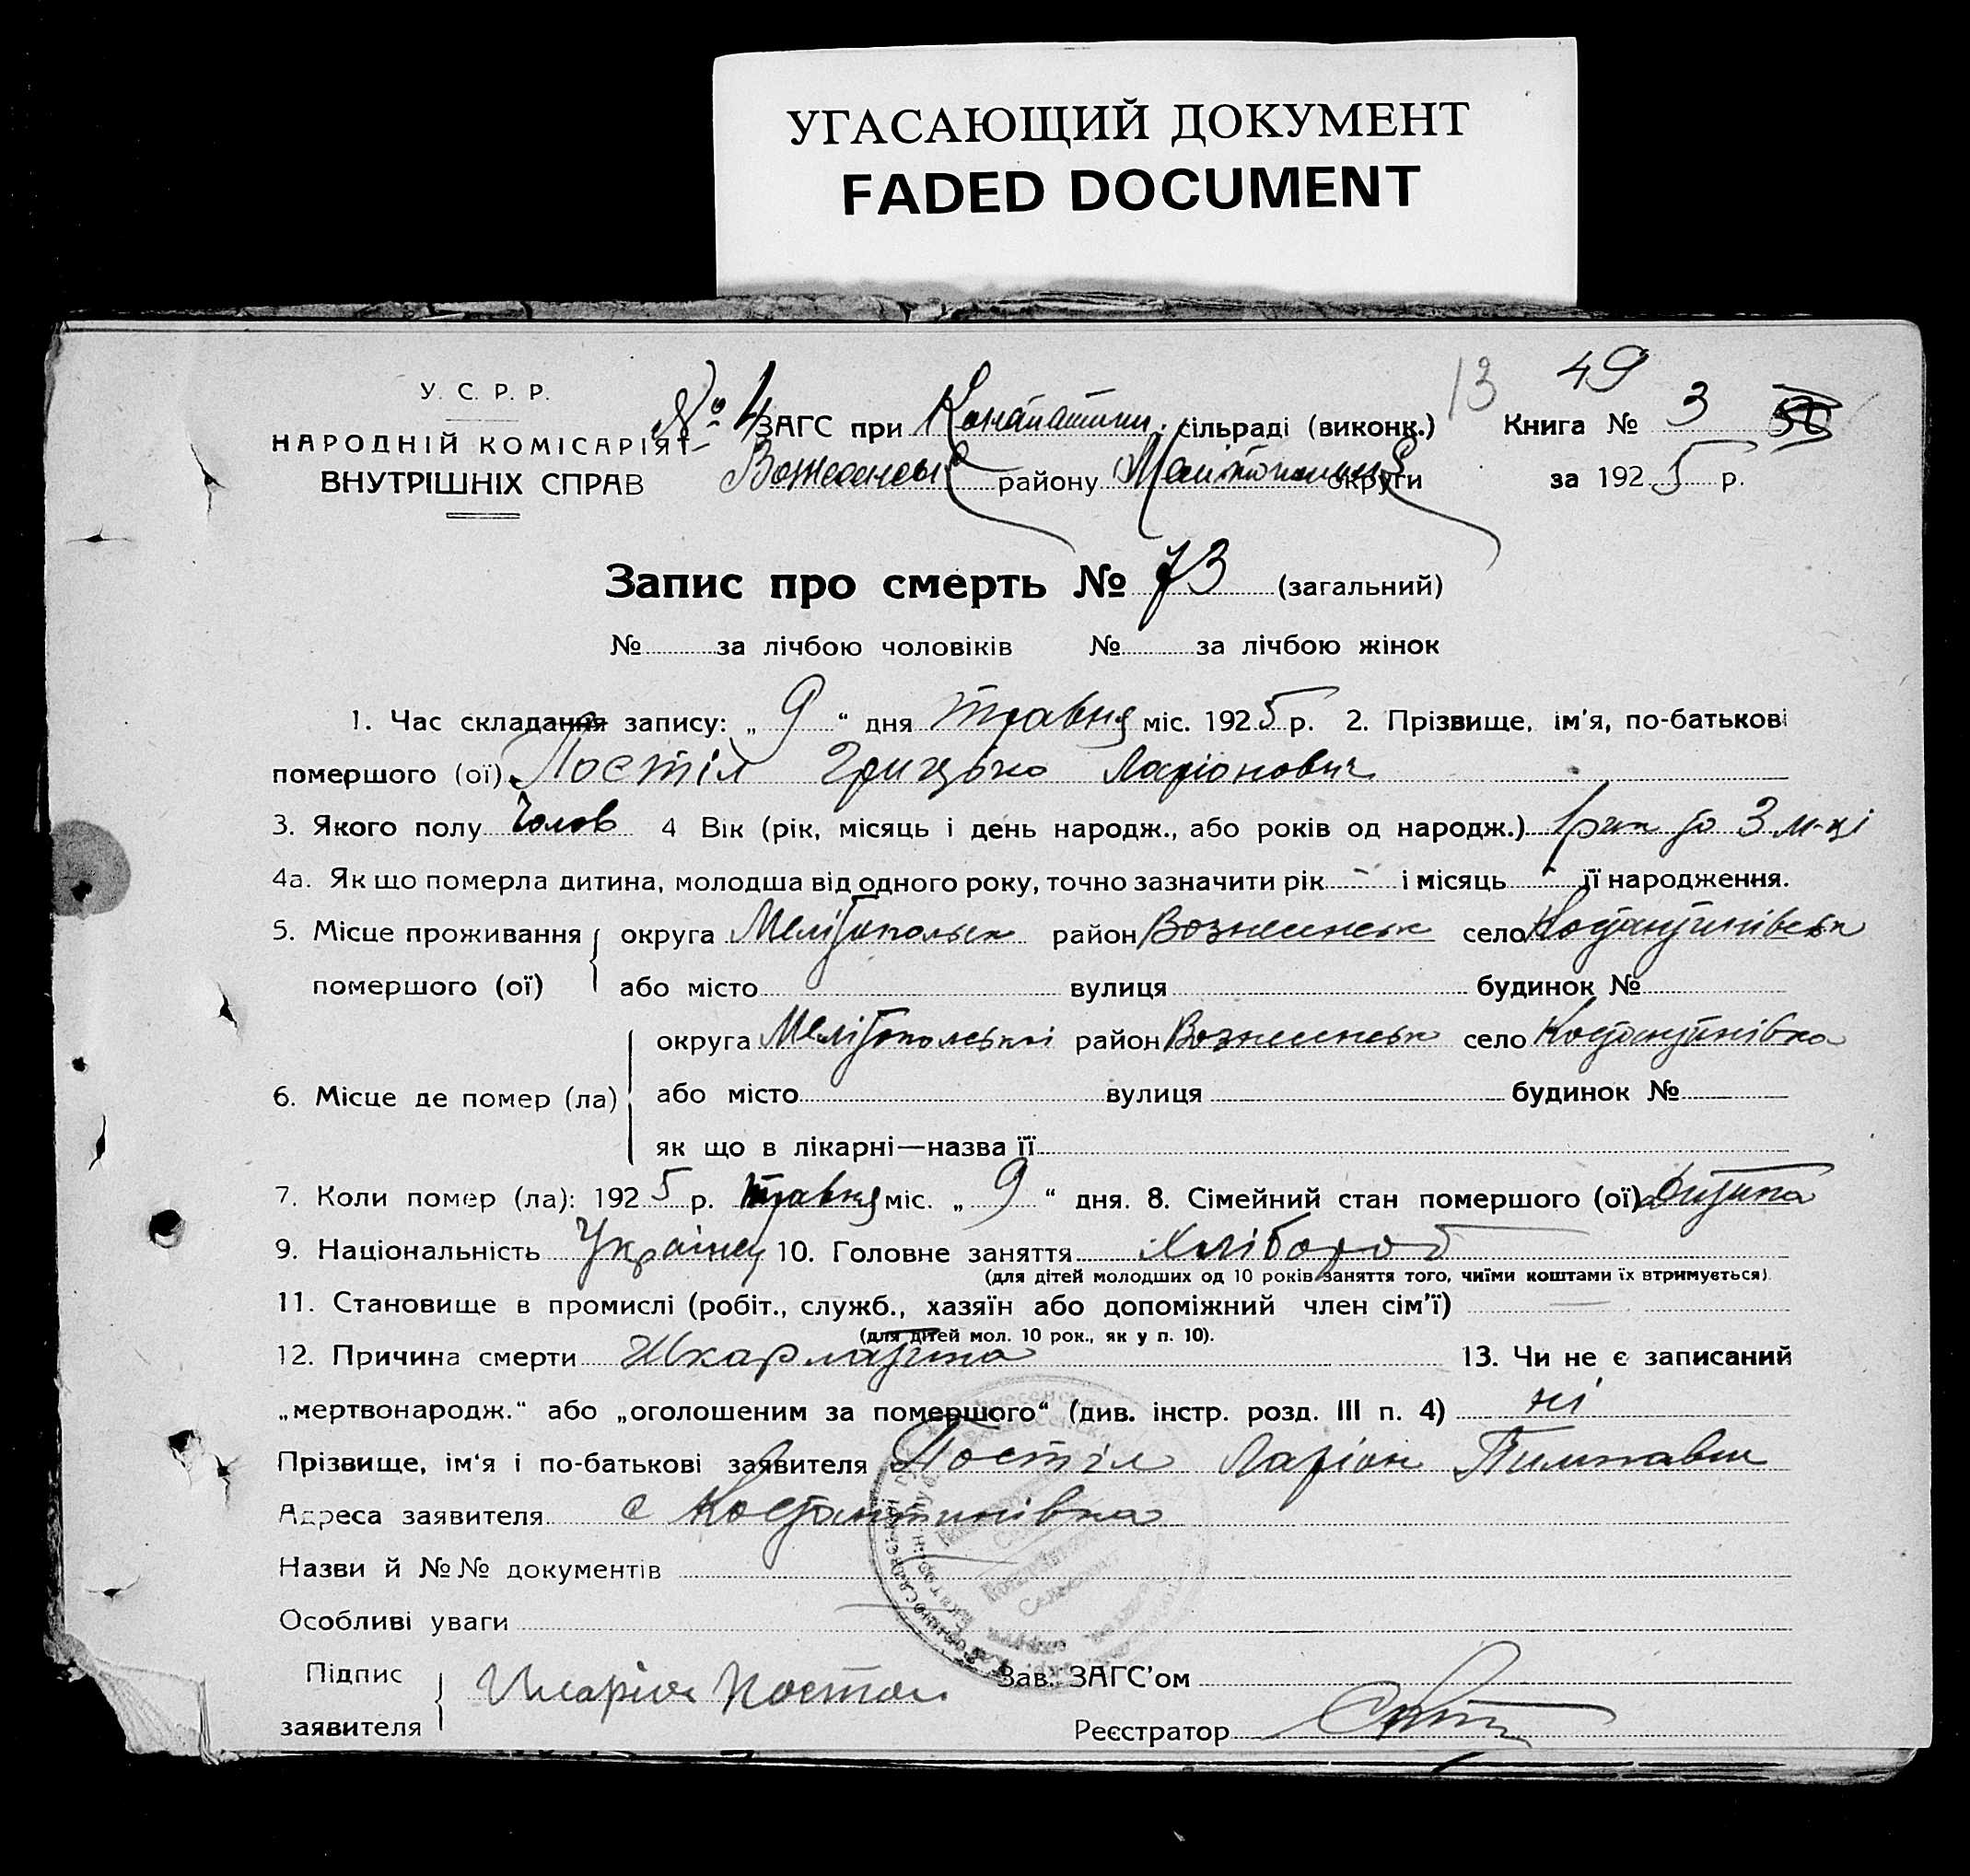 УГАСАЮЩИЙ ДОКУМЕНТ
FADED DOCUMENT
13 49
У. С. Р. Р.
НАРОДНІЙ КОМІСАРІЯТ
ВНУТРІШНІХ СПРАВ
№ 4 ЗАГС при сільраді (виконк.) Книга № 3
району округи за 1925 р.
Запис про смерть № 73 (загальний)
№ за лічбою чоловіків № за лічбою жінок
1. Час складання запису: „ 9 “ дня травня міс. 1925 р. 2. Прізвище, ім'я, по-батькові
помершого (ої) Постіл Грицько Ларіонович
3. Якого полу Чолов 4 Вік (рік, місяць і день народж., або років од народж.) 1 рік 3 м-ці
4а. Як що померла дитина, молодша від одного року, точно зазначити рік - і місяць - її народження.
5. Місце проживання округа Мелітопольск район Вознесенськ село
помершого (ої) або місто вулиця будинок №
округа Мелітопольські район Вознесенськ село Костянтинівка
6. Місце де помер (ла) або місто вулиця будинок №
як що в лікарні—назва її
7. Коли помер (ла): 1925 р. травня міс. „ 9 “ дня. 8. Сімейний стан помершого (ої) дитина
9. Національність Українец 10. Головне заняття Хлібороб
(для дітей молодших од 10 років заняття того, чиїми коштами їх втримується)
11. Становище в промислі (робіт., служб., хазяїн або допоміжний член сім'ї) —
(для дітей мол. 10 рок., як у п. 10).
12. Причина смерти Шкарлатина 13. Чи не є записаний
„мертвонародж.“ або „оголошеним за помершого“ (див. інстр. розд. III п. 4) ні
Прізвище, ім'я і по-батькові заявителя Постіл Ларіон
Адреса заявителя с Костянтинівка
Назви й №№ документів
Особливі уваги
Підпис
заявителя Иларіон Постол
Зав. ЗАГС'ом
Реєстратор